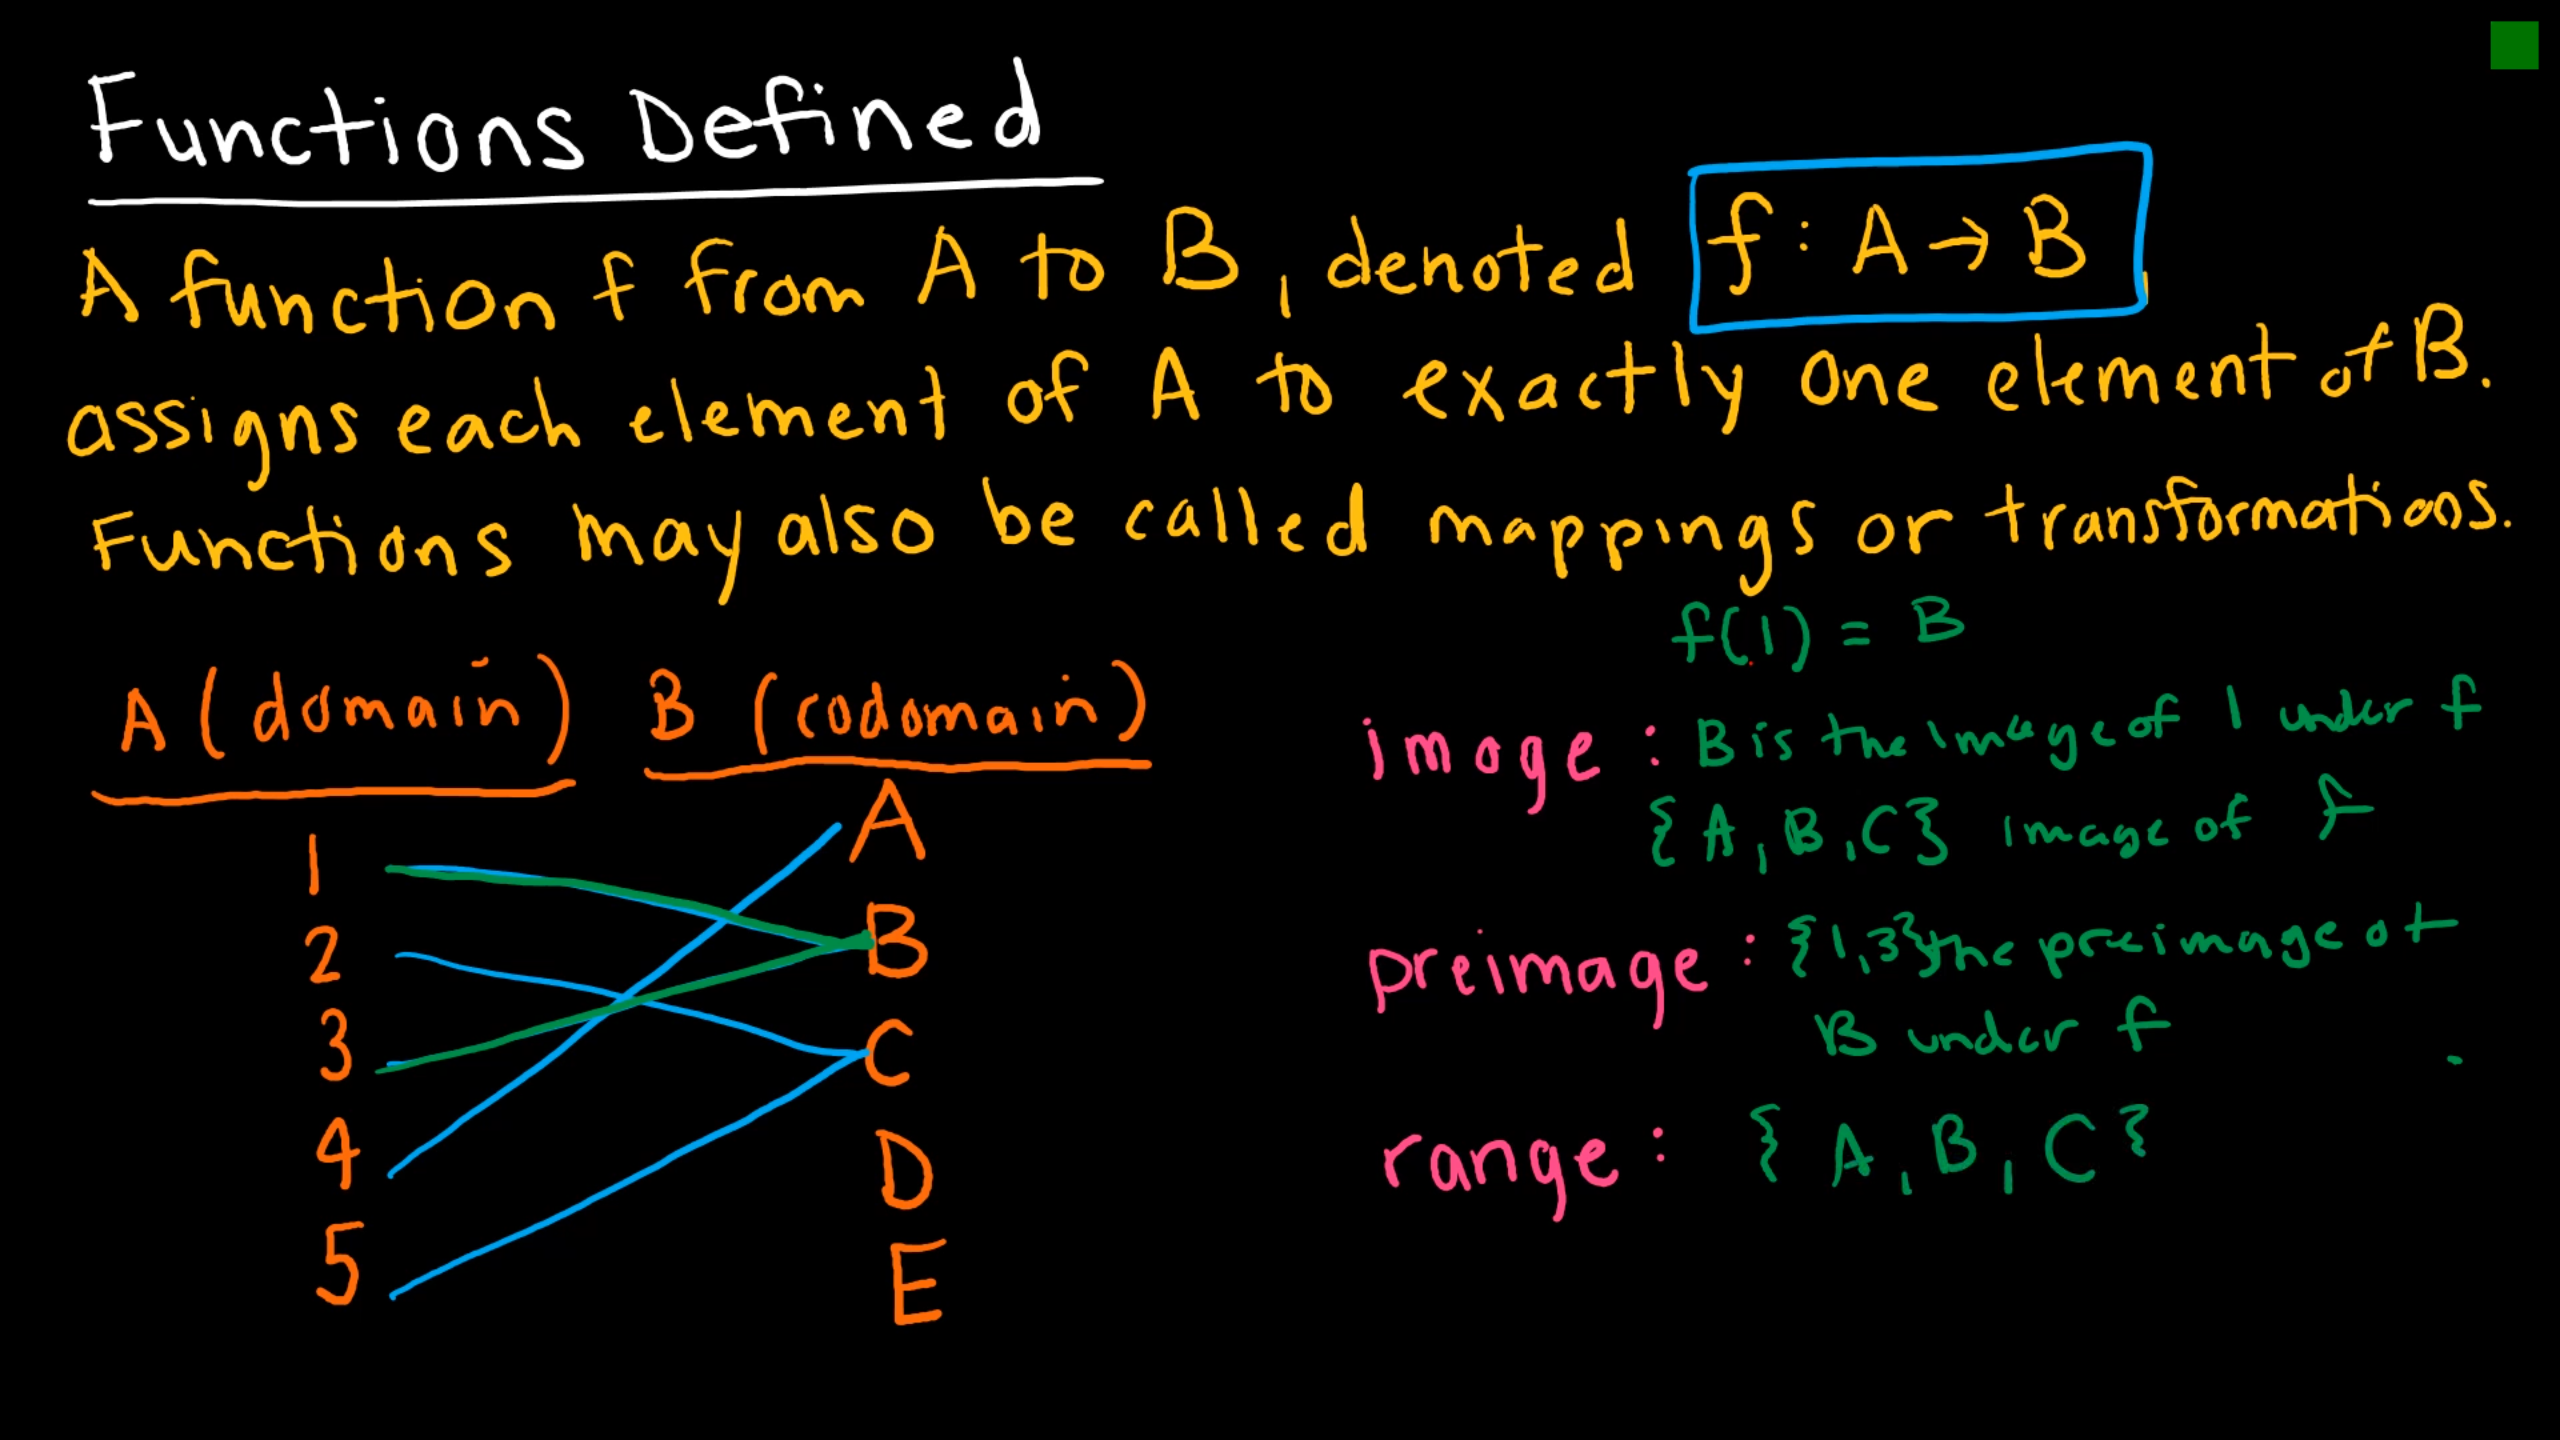 Functions Defined
A function f from A to B, denoted f : A → B,
assigns each element of A to exactly one element of B.
Functions may also be called mappings or transformations.
A (domain) B (codomain)
1 A
2 B
3 C
4 D
5 E
f(1) = B
image : B is the image of 1 under f
{A, B, C} image of f
preimage : {1,3} the preimage of
B under f
range : { A, B, C }